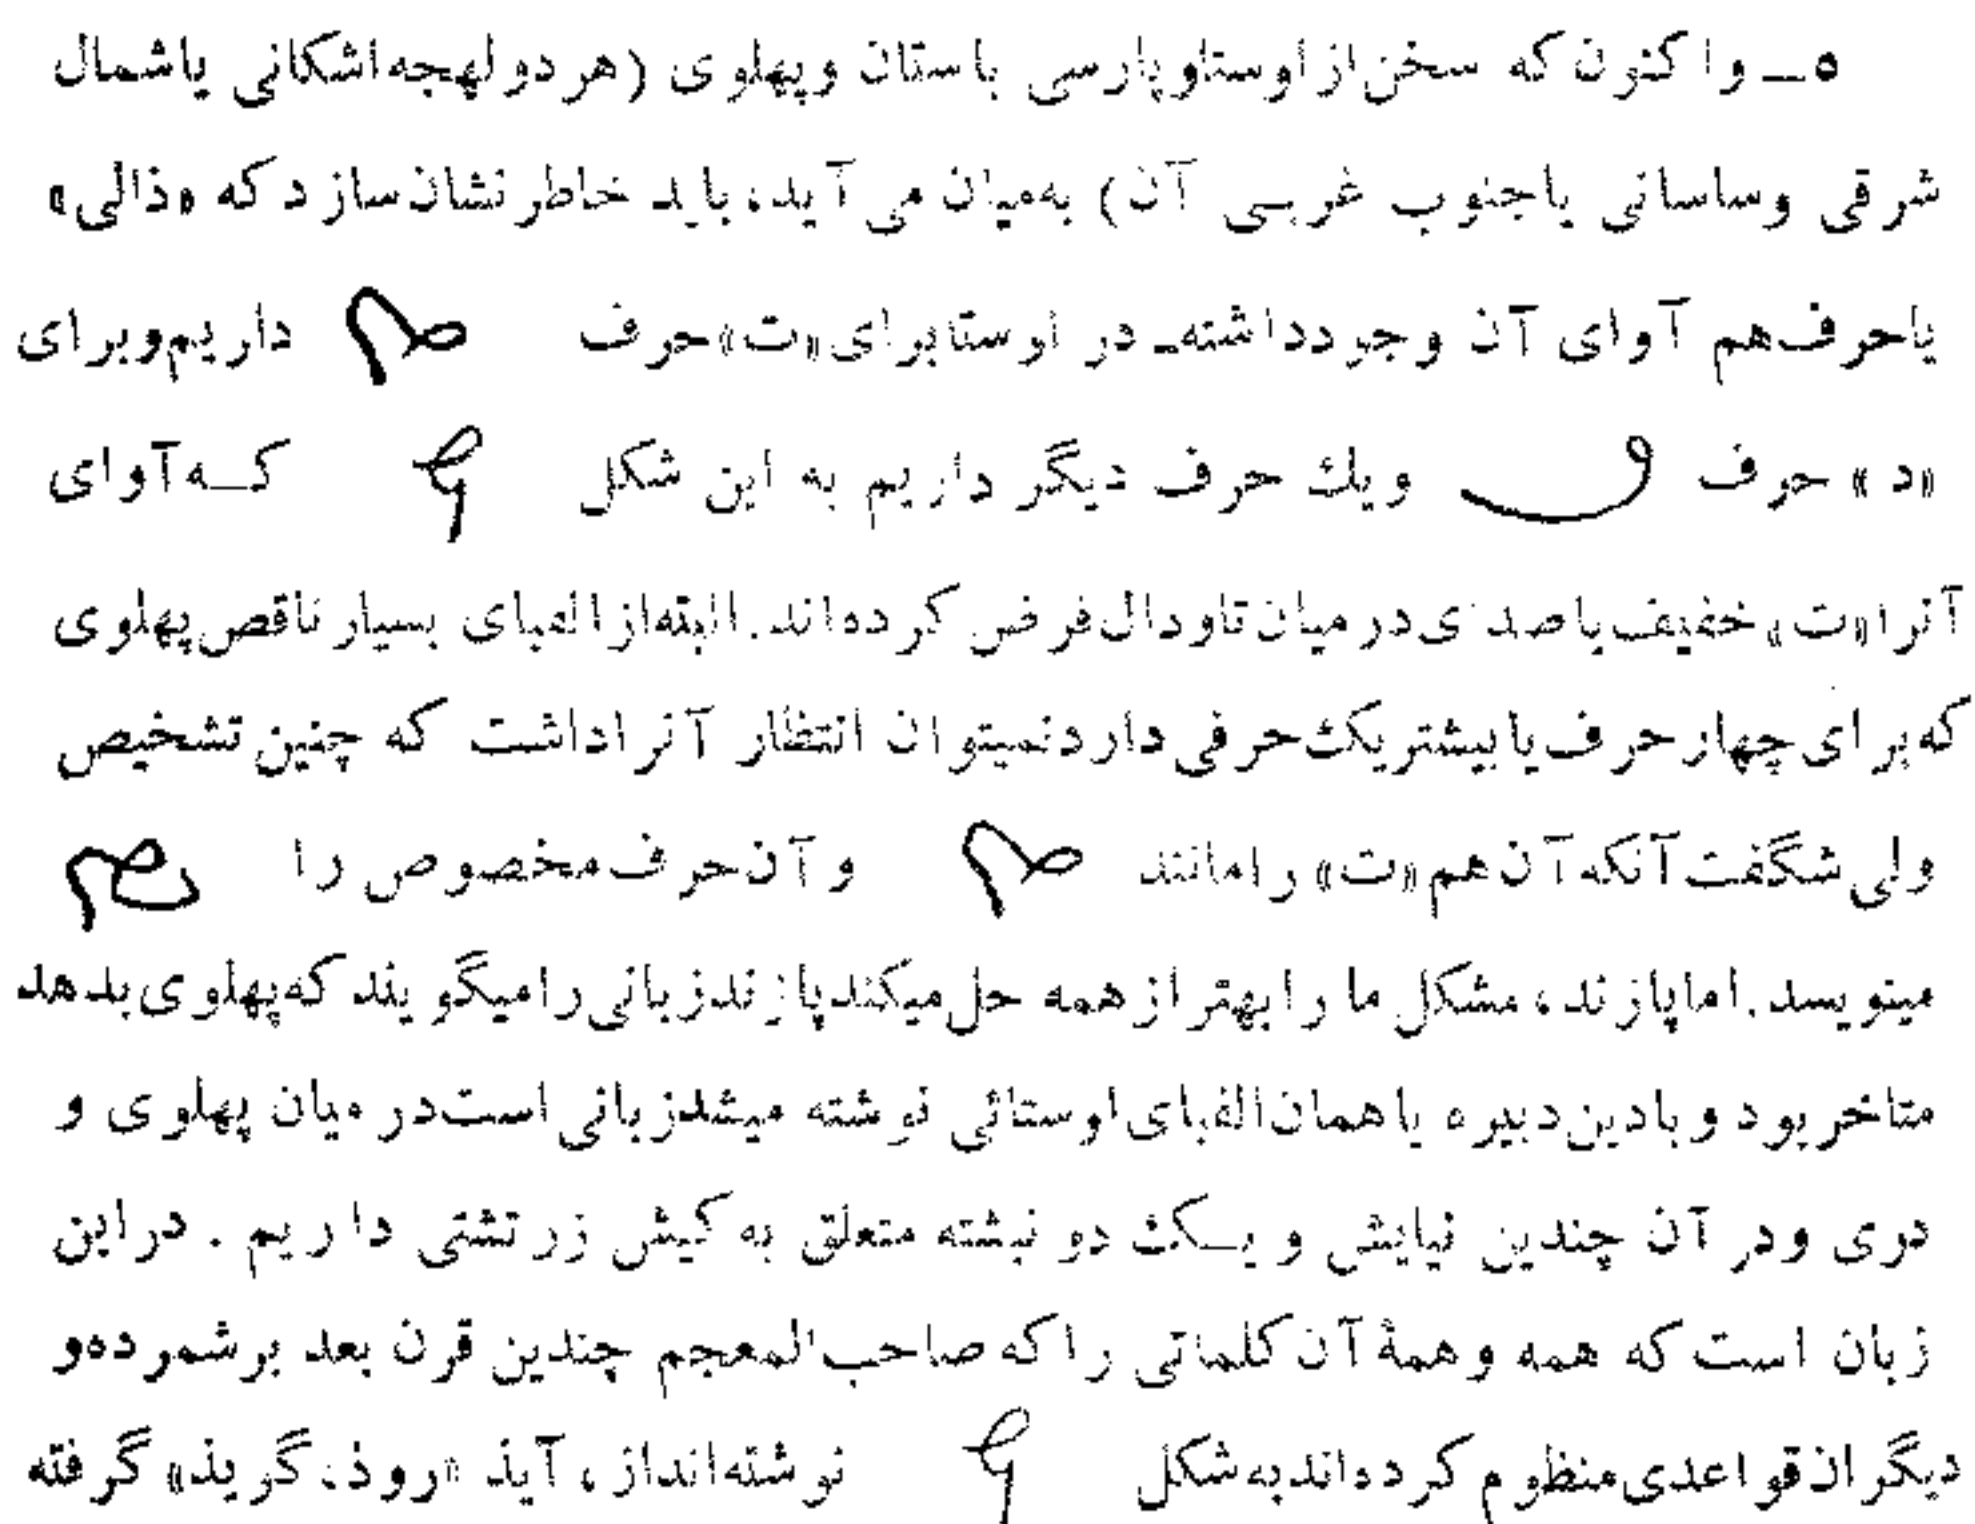 ۵ــ واکنون که سخن از اوستاو پارسی باستان وپهلوی (هردو لهجه اشکانی یاشمال
شرقی وساسانی یاجنوب غربی آن) به میان می آید، باید خاطر نشان سازد که «ذالی»
یاحرف هم آوای آن وجودداشته ـ در اوستابرای «ت» حرف داریم وبرای
«د» حرف ویك حرف دیگر داریم به این شکل کــه آوای
آنرا «ت» خفیف یا صدای در میان تاودال فرض کرده اند. البته از الفبای بسیار ناقص پهلوی
که برای چهار حرف یا بیشتر یک حرفی دارد نمیتوان انتظار آنراداشت که چنین تشخیص
ولی شگفت آنکه آن هم «ت» را مانند و آن حرف مخصوص را
مینویسد. اما پازند، مشکل ما را بهتر از همه حل میکند پازند زبانی را میگویند که پهلوی بدهد
متاخر بود و بادین دبیره یا همان الفبای اوستائی نوشته میشد زبانی است در میان پهلوی و
دری ودر آن چندین نیایش و یــک دو نبشته متعلق به کیش زرتشتی داریم . در این
زبان است که همه و همهٔ آن کلماتی را که صاحب المعجم چندین قرن بعد برشمرده و
دیگران قواعدی منظوم کرده اند به شکل نوشته اند از، آیذ «روذ، گریذ» گرفته